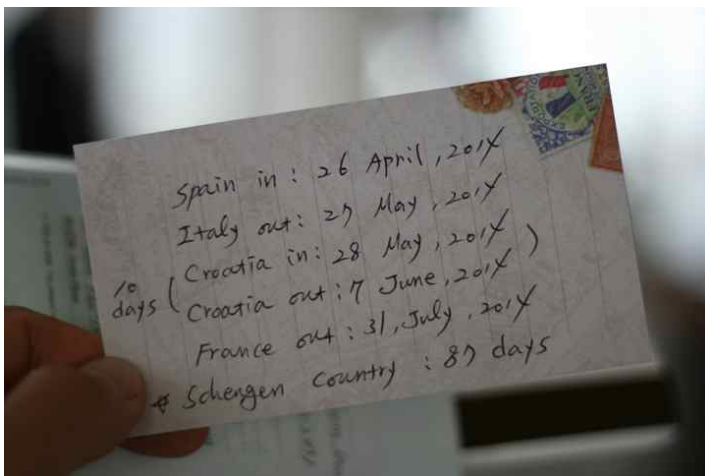 Spain in : 26 April, 2014
Italy out : 27 May, 2014
10 days ( Croatia in : 28 May, 2014
Croatia out : 7 June, 2014 )
France out : 31, July, 2014
* Schengen Country : 87 days